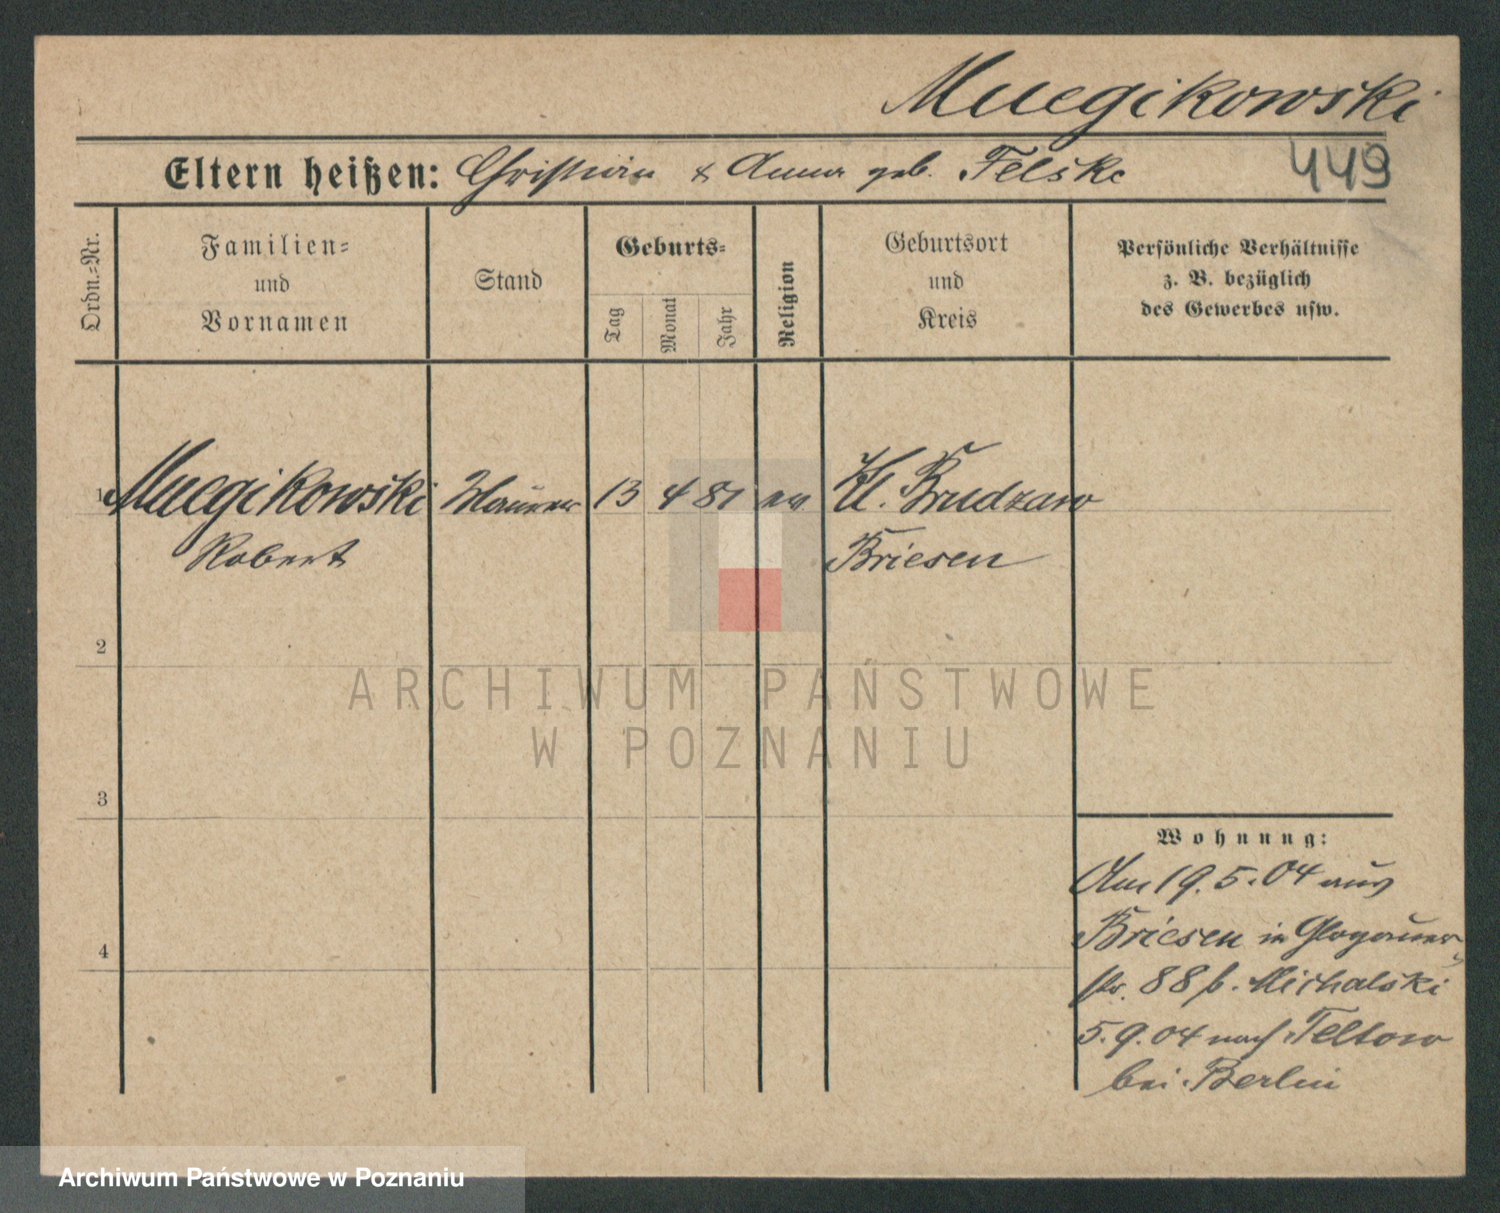 Muegikowski
Eltern heißen: Christian & Anna geb. Felske
449
Ordn.=Nr.
Familien=
und
Vornamen
Stand
Geburts=
Tag
Monat
Jahr
Religion
Geburtsort
und
Kreis
Persönliche Verhältnisse
z. B. bezüglich
des Gewerbes usw.
1 Muegikowski Maurer 13 4 81 ev Kl. Brudzaw
Robert Briesen
2
3
4
Wohnung:
Am 19.5.04 aus
Briesen in Glogauer
str. 88 b. Michalski
5.9.04 nach Teltow
bei Berlin
ARCHIWUM PAŃSTWOWE
W POZNANIU
Archiwum Państwowe w Poznaniu